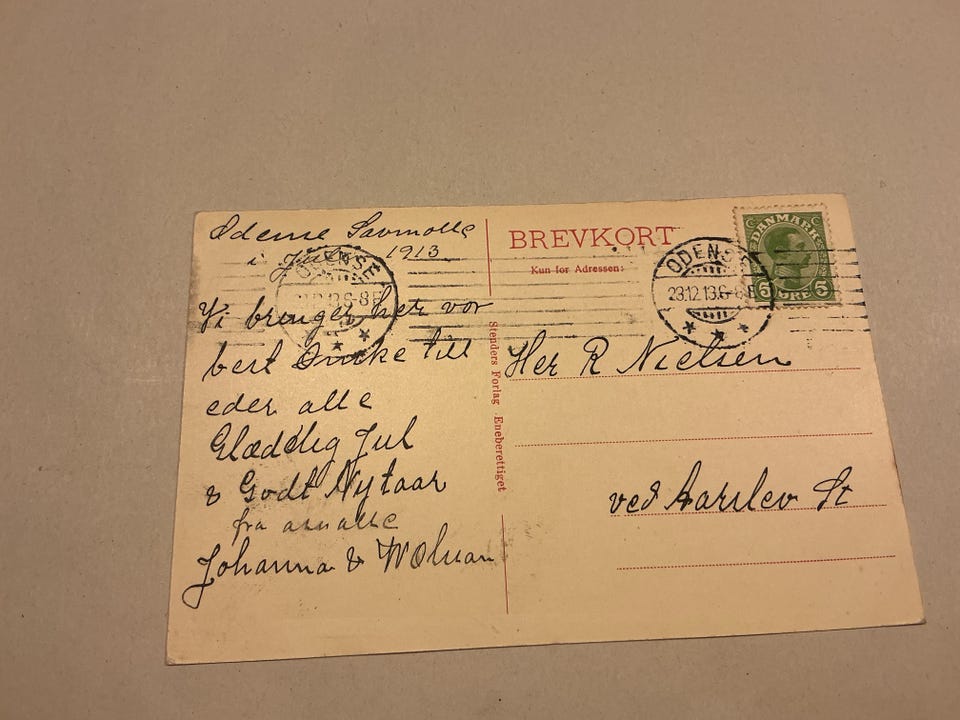 Odense Savmølle
i Julen 1913
Vi bringer her vor
best Ønske till
eder alle
Glædelig Jul
& Godt Nytaar
fra os alle
Johanna &
BREVKORT
Kun for Adressen:
Stenders Forlag Eneberettiget
ODENSE
23.12.13.6-8E
DANMARK
5 ØRE 5
ODENSE
13.6-8E
Her R Nielsen
ved Aarslev St